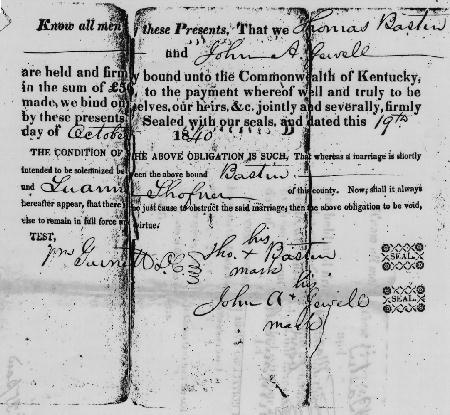 Know all men these Presents, That we Thomas Bastin
and John A Sewell
are held and firm bound unto the Commonwealth of Kentucky,
in the sum of £50, to the payment whereof well and truly to be
made, we bind o selves, our heirs, &c. jointly and severally, firmly
by these presents Sealed with our seals, and dated this 19th
day of October 1840
THE CONDITION OF THE ABOVE OBLIGATION IS SUCH, That whereas a marriage is shortly
intended to be solemnized b een the above bound Bastin
and Luann of this county. Now; shall it always
hereafter appear, that there no just cause to obstruct the said marriage, then the above obligation to be void,
else to remain in full force a virtue;
TEST,
his
Tho. + Bastin
mark
SEAL
his
John A + Sewell
mark
SEAL